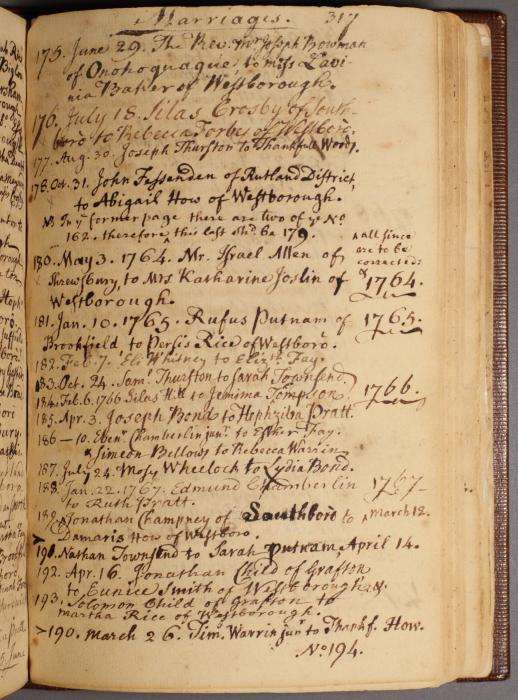 Marriages. 317
175. June 29. The Rev. Mr. Joseph Bowman
of Onohoquague to Miss Lavi-
nia Baker of Westborough.
176. July 18. Silas Crosby of South-
boro to Rebecca Forbes of Westboro.
177. Aug. 30. Joseph Thurston to Thankfull Wood,
178. Oct. 31. John Fessenden of Rutland District,
to Abigail How of Westborough.
NB In ye former page there are two of ye No
162. therefore this last sho'd be 179. ^ all since
are to be
corrected:
180. May 3. 1764. Mr. Israel Allen of
Shrewsbury, to Mrs Katharine Joslin of 1764.
Westborough.
181. Jan. 10. 1765. Rufus Putnam of 1765.
Brookfield to Persis Rice of Westboro.
182. Feb. 7. Eli Whitney to Elizth. Fay.
183. Oct. 24. Saml. Thurston to Sarah Townsend.
184. Feb. 6. 1766 Silas Hill to Jemima Tompson. 1766.
185. Apr. 3. Joseph Bond to Hephziba Pratt.
186 — 10. Ebenr. Chamberlin junr. to Esther Fay.
& Simeon Bellows to Rebecca Warrin
187. July 24. Mosy Wheelock to Lydia Bond.
188. Jan. 22. 1767. Edmund Chamberlin 1767
to Ruth Pratt.
189. Jonathan Champney of Southboro to ^ March 12.
Damaris How of Westboro.
> 190. Nathan Townsend to Sarah Putnam April 14.
192. Apr. 16. Jonathan Child of Grafton
to Eunice Smith of Westborough &
193. Solomon Child of Grafton to
Martha Rice of Westborough.
>190. March 26. Timo. Warrin junr to Thankf. How.
No. 194.